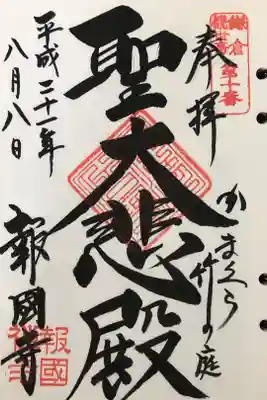 鎌倉
観世音
第十番
奉拝
かまくら竹の庭
聖大悲殿
平成二十一年
八月八日
報國寺
報國